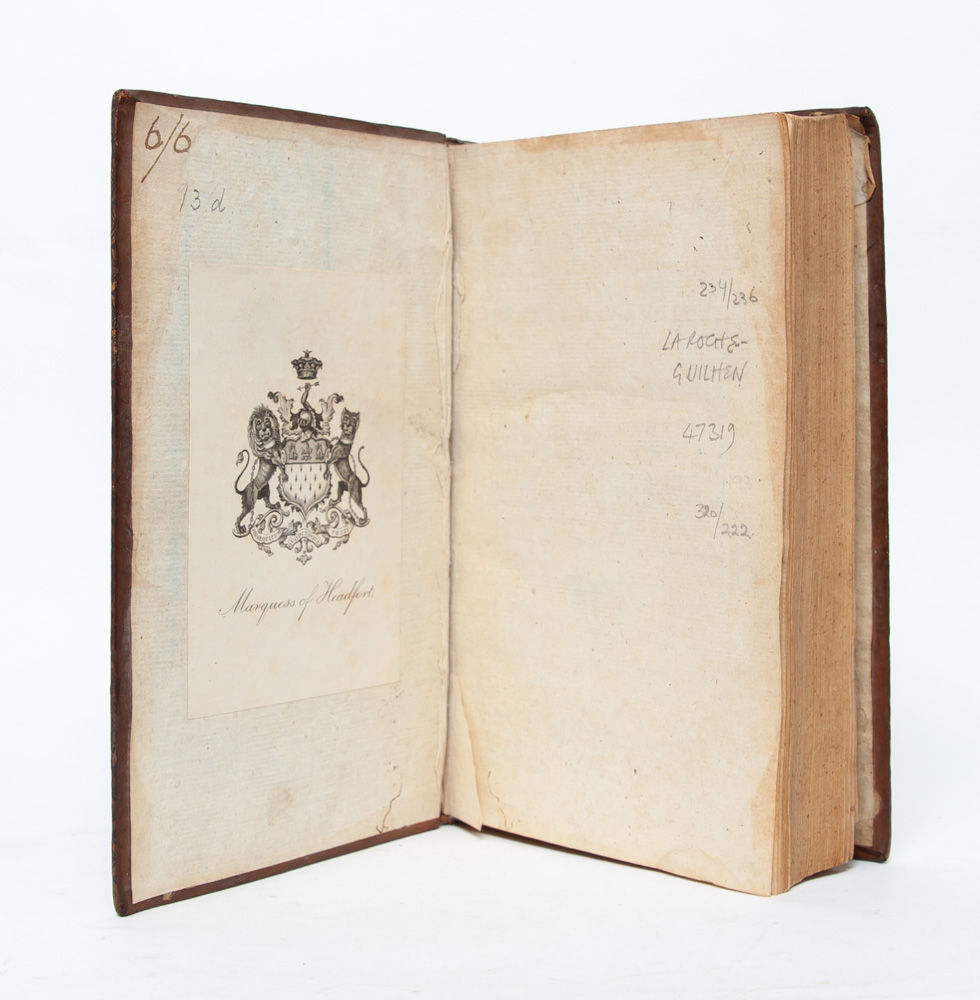 6/6
13 d
Marquess of Headfort.
234/236
LAROCHE-
GUILHEN
47319
320/222